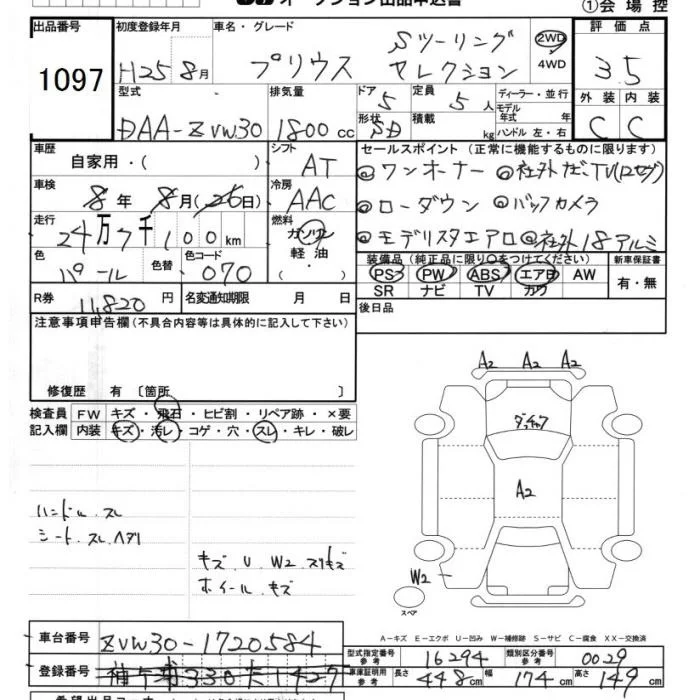 オークション出品申込書
①会場控
出品番号 1097
初度登録年月 H25 8月
車名・グレード プリウス Sツーリング セレクション
2WD 4WD
評価点 3.5
外装 C 内装 C
型式 DAA-ZVW30
排気量 1800cc
ドア 5
形状 5D
定員 5人
積載 kg
ディーラー・並行
モデル年式 年
ハンドル 左・右
車歴 自家用・( )
シフト AT
車検 8年 8月(26日)
冷房 AAC
走行 24万7千100km
燃料 ガソリン 軽油 ・( )
色 パール
色替
色コード 070
R券 11,820円
名変通知期限 月 日
セールスポイント (正常に機能するものに限ります)
◎ワンオーナー ◎社外ナビ、TV(12セグ)
◎ローダウン ◎バックカメラ
◎モデリスタエアロ ◎社外18アルミ
装備品(純正品に限り○をつけてください)
PS PW ABS エアB AW
SR ナビ TV カワ
新車保証書 有・無
後日品
注意事項申告欄(不具合内容等は具体的に記入して下さい)
修復歴 有 〔箇所 〕
検査員記入欄
FW キズ・飛石・ヒビ割・リペア跡・×要
内装 キズ・汚レ・コゲ・穴・スレ・キレ・破レ
ハンドル スレ
シート スレ ヘタリ
キズ U W2 スリキズ
ホイール キズ
A2 A2 A2
A2
W2
スペア
A-キズ E-エクボ U-凹み W-補修跡 S-サビ C-腐食 XX-交換済
車台番号 ZVW30-1720584
登録番号 330 1427
型式指定番号 参考 16294
類別区分番号 参考 0029
車庫証明用 参考 長さ 448cm 幅 174cm 高さ 149cm
希望出品コーナー